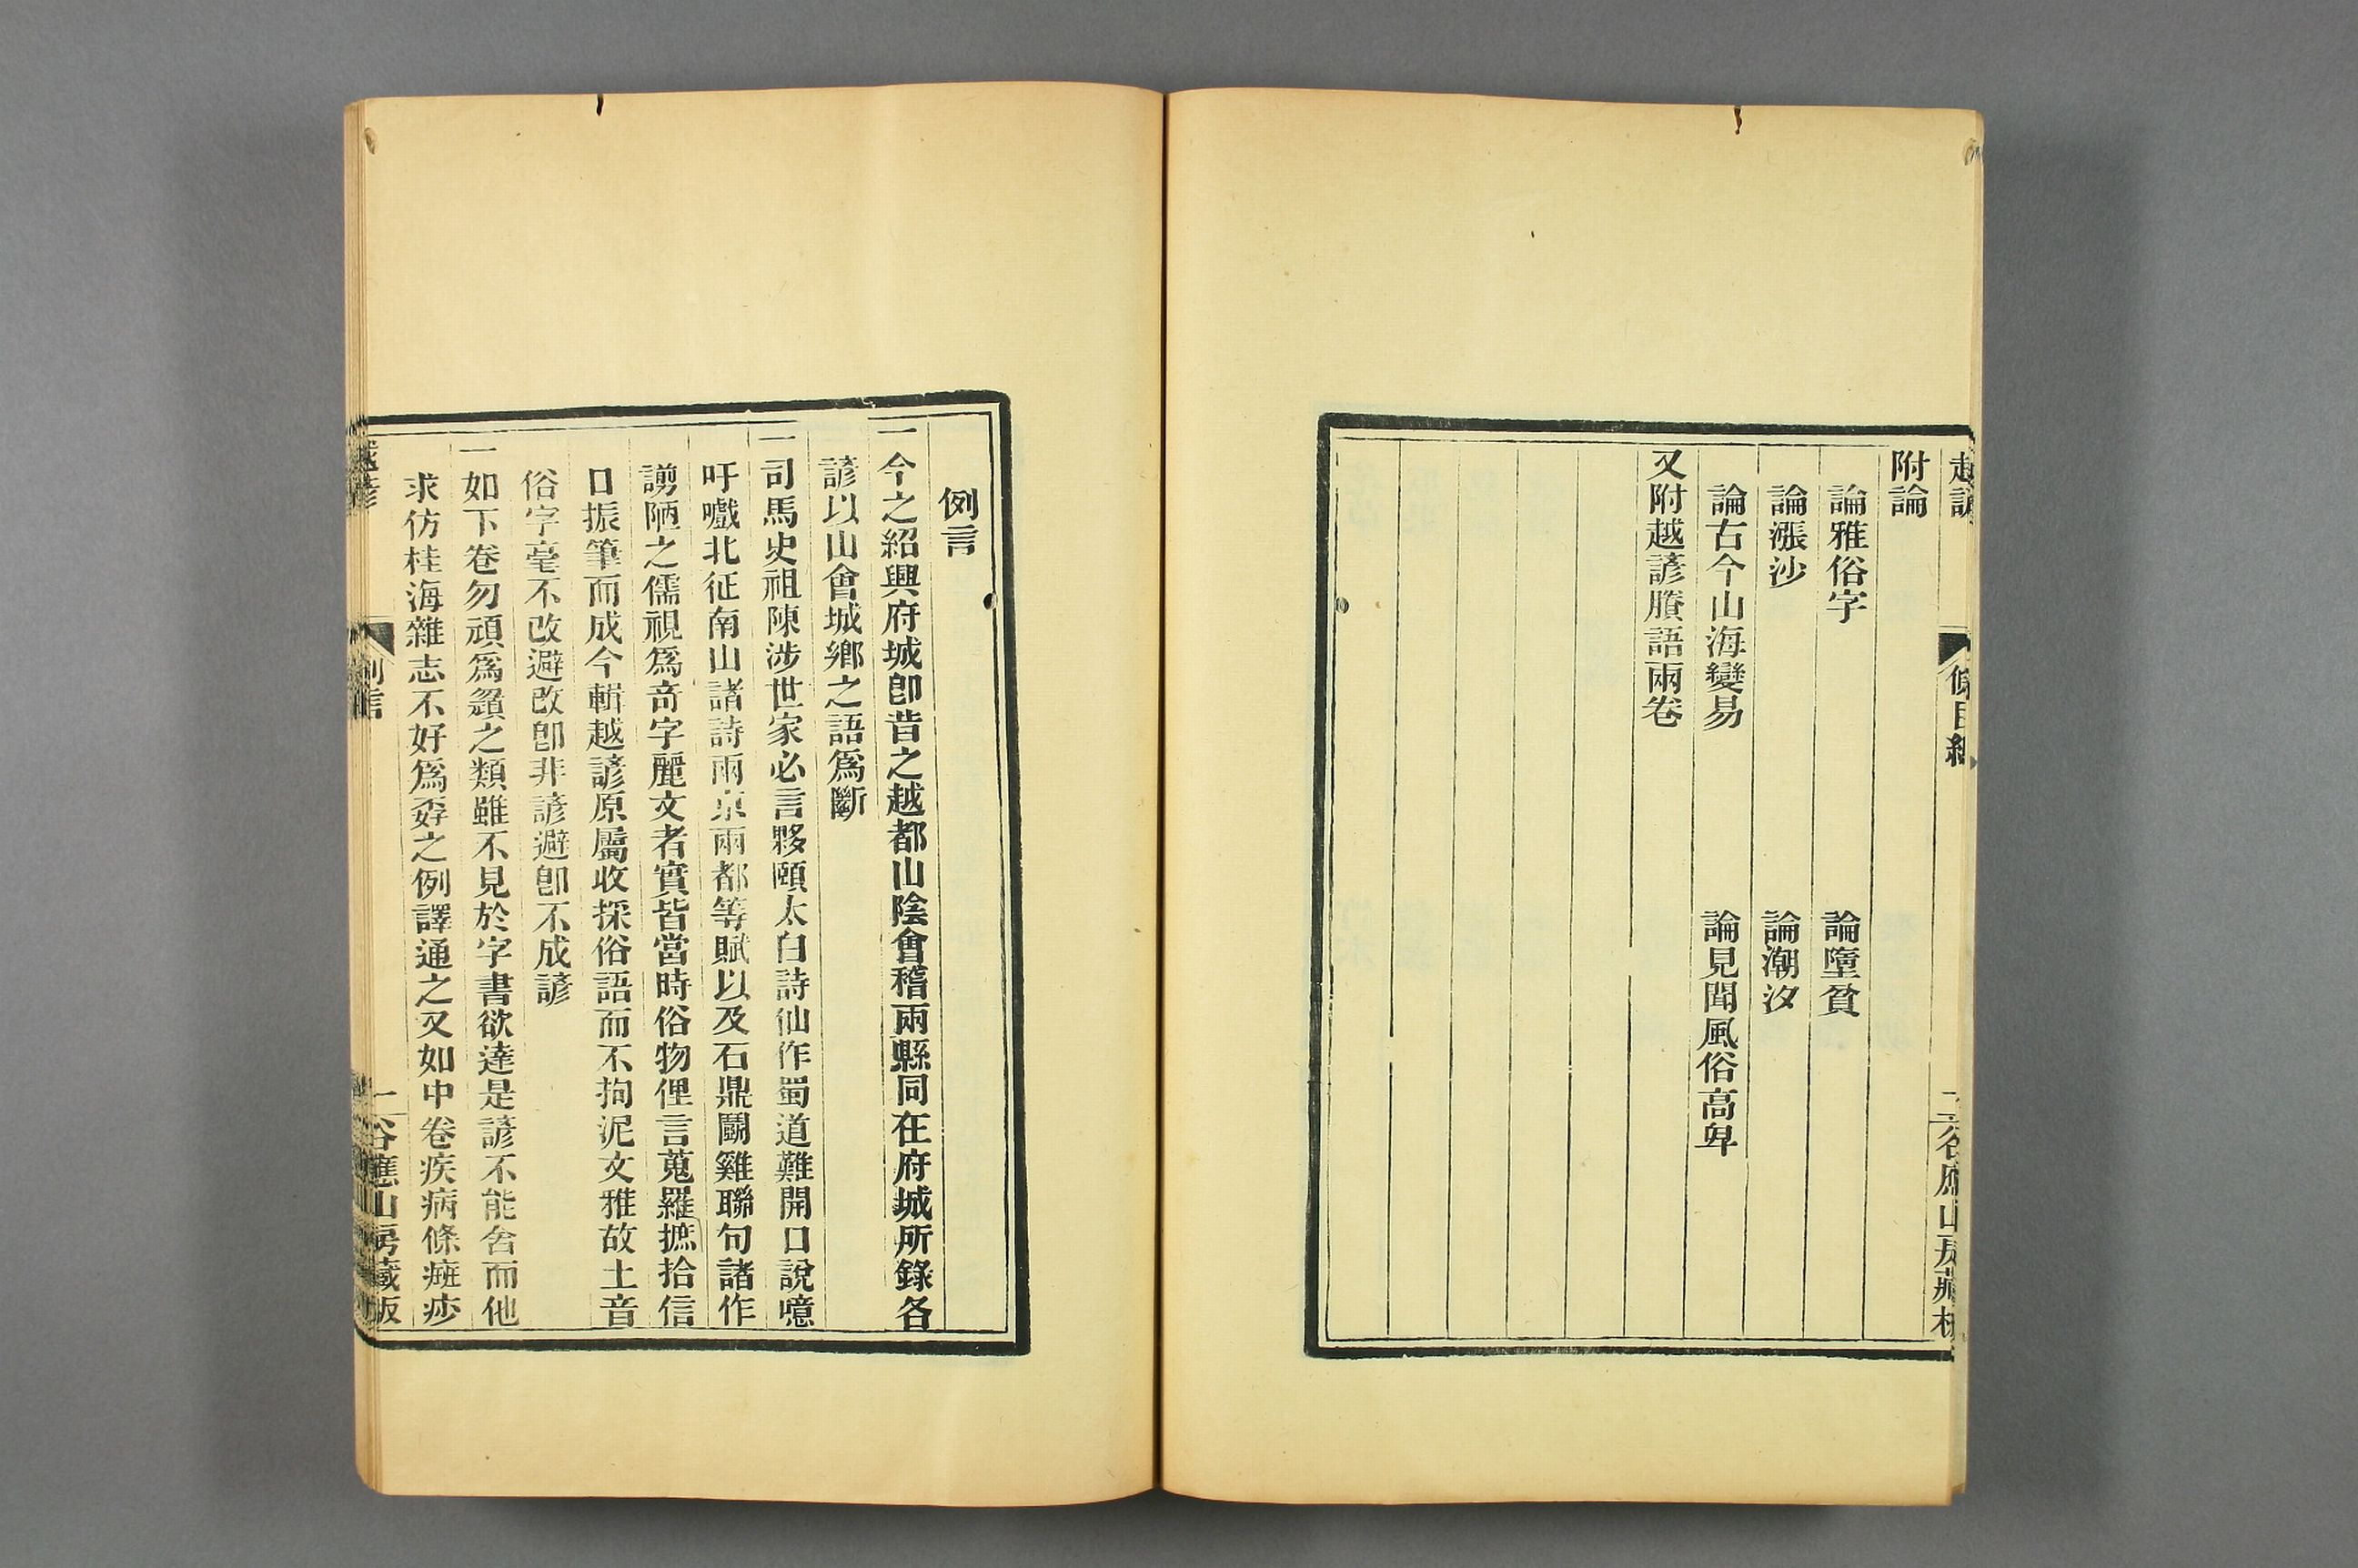 越諺
條目終
二
谷應山房藏板
附論
論雅俗字
論墮貧
論漲沙
論潮汐
論古今山海變易
論見聞風俗高卑
又附越諺賸語兩卷
例言
一今之紹興府城卽昔之越都山陰會稽兩縣同在府城所錄各
諺以山會城鄉之語爲斷
一司馬史祖陳涉世家必言夥頤太白詩仙作蜀道難開口說噫
吁嚱北征南山諸詩兩京兩都等賦以及石鼎鬭雞聯句諸作
謭陋之儒視爲奇字麗文者實皆當時俗物俚言蒐羅摭拾信
口振筆而成今輯越諺原屬收採俗語而不拘泥文雅故土音
俗字毫不改避改卽非諺避卽不成諺
一如下卷勿頑爲之類雖不見於字書欲達是諺不能舍而他
求仿桂海雜志不好爲孬之例譯通之又如中卷疾病條痧
越諺
例言
一
谷應山房藏板